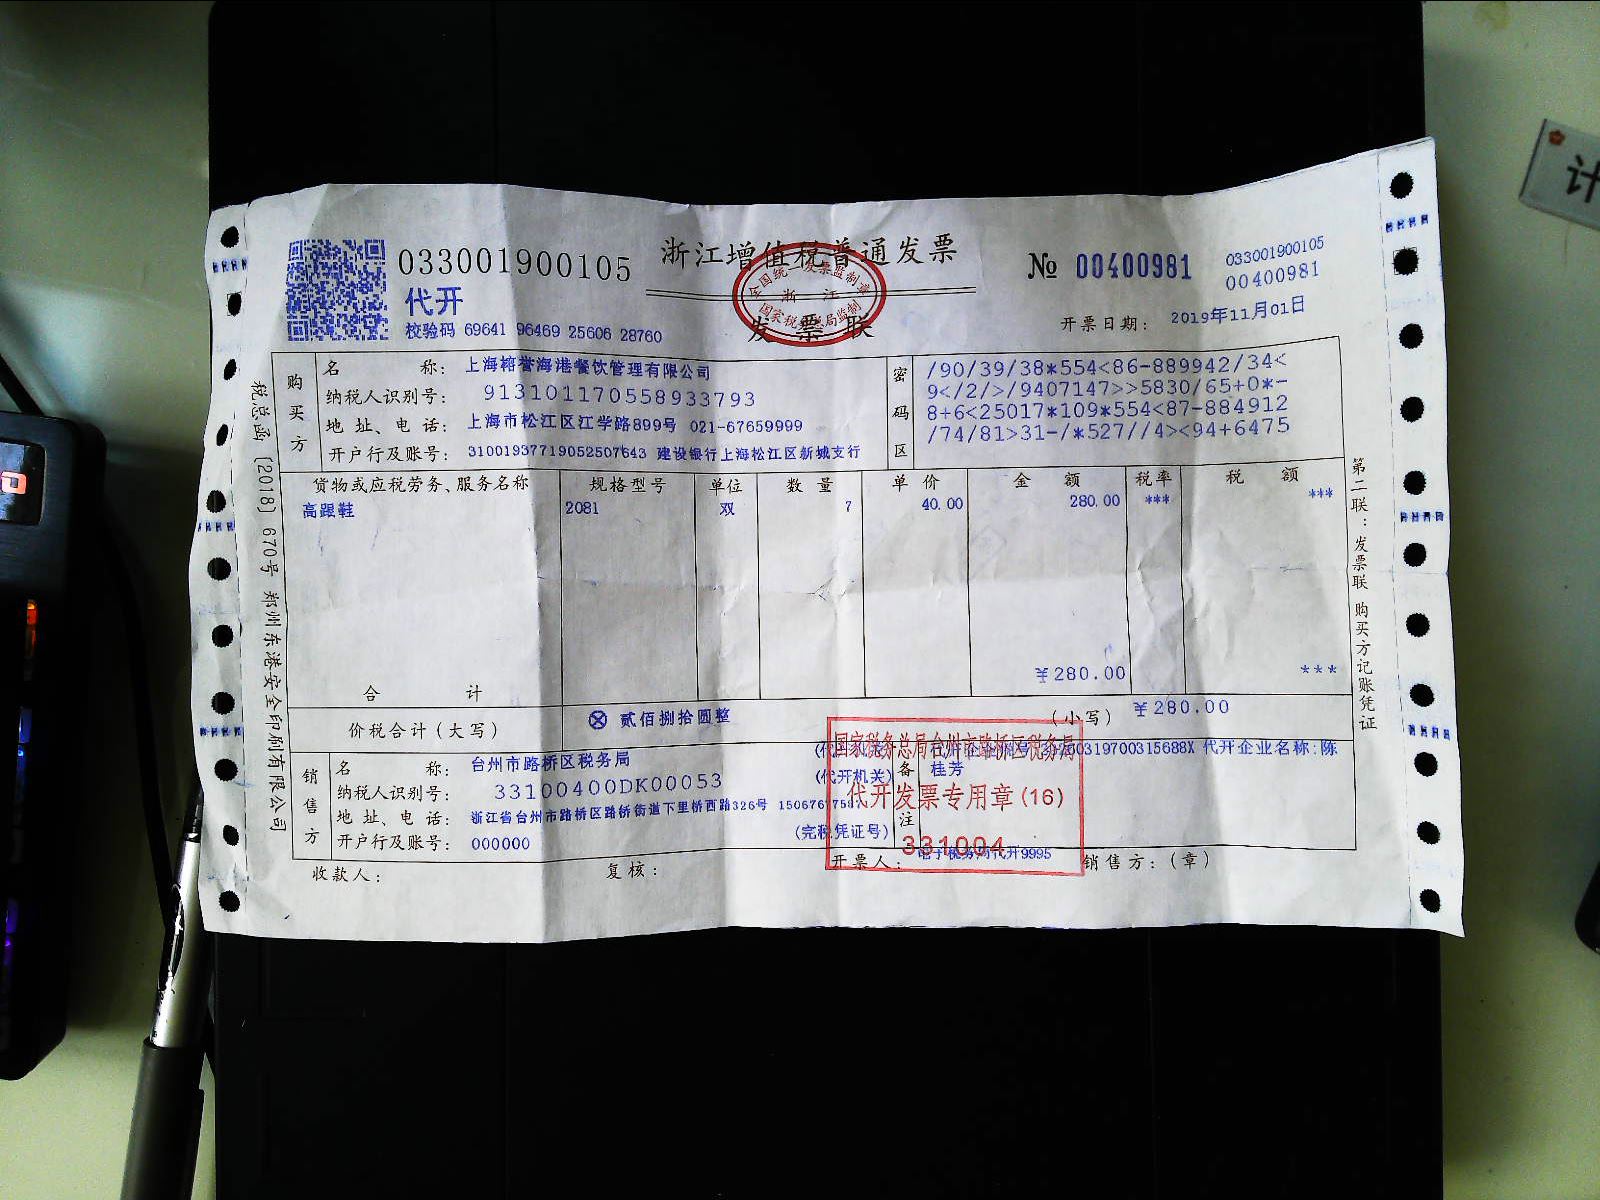 浙江增值税普通发票
033001900105
№ 00400981
033001900105
00400981
代开
校验码 69641 96469 25606 28760
全国统一发票监制章
浙 江
国家税务总局监制
发 票 联
开票日期: 2019年11月01日
购买方
名 称: 上海榕誉海港餐饮管理有限公司
纳税人识别号: 913101170558933793
地 址、电 话: 上海市松江区江学路899号 021-67659999
开户行及账号: 31001937719052507643 建设银行上海松江区新城支行
密码区
/90/39/38*554<86-889942/34<
9</2/>/9407147>>5830/65+0*-
8+6<25017*109*554<87-884912
/74/81>31-/*527//4><94+6475
货物或应税劳务、服务名称 规格型号 单位 数 量 单 价 金 额 税率 税 额
高跟鞋 2081 双 7 40.00 280.00 *** ***
合 计 ¥280.00 ***
价税合计(大写) ⊗ 贰佰捌拾圆整 (小写) ¥280.00
销售方
名 称: 台州市路桥区税务局
纳税人识别号: 33100400DK00053
地 址、电 话: 浙江省台州市路桥区路桥街道下里桥西路326号
开户行及账号: 000000
(代开机关)
(完税凭证号)
备注
代开企业名称:陈
桂芳
国家税务总局台州市路桥区税务局
代开发票专用章(16)
331004
收款人:
复核:
开票人: 电子税务局代开9995
销售方:(章)
税总函〔2018〕670号 郑州东港安全印刷有限公司
第二联:发票联 购买方记账凭证
计